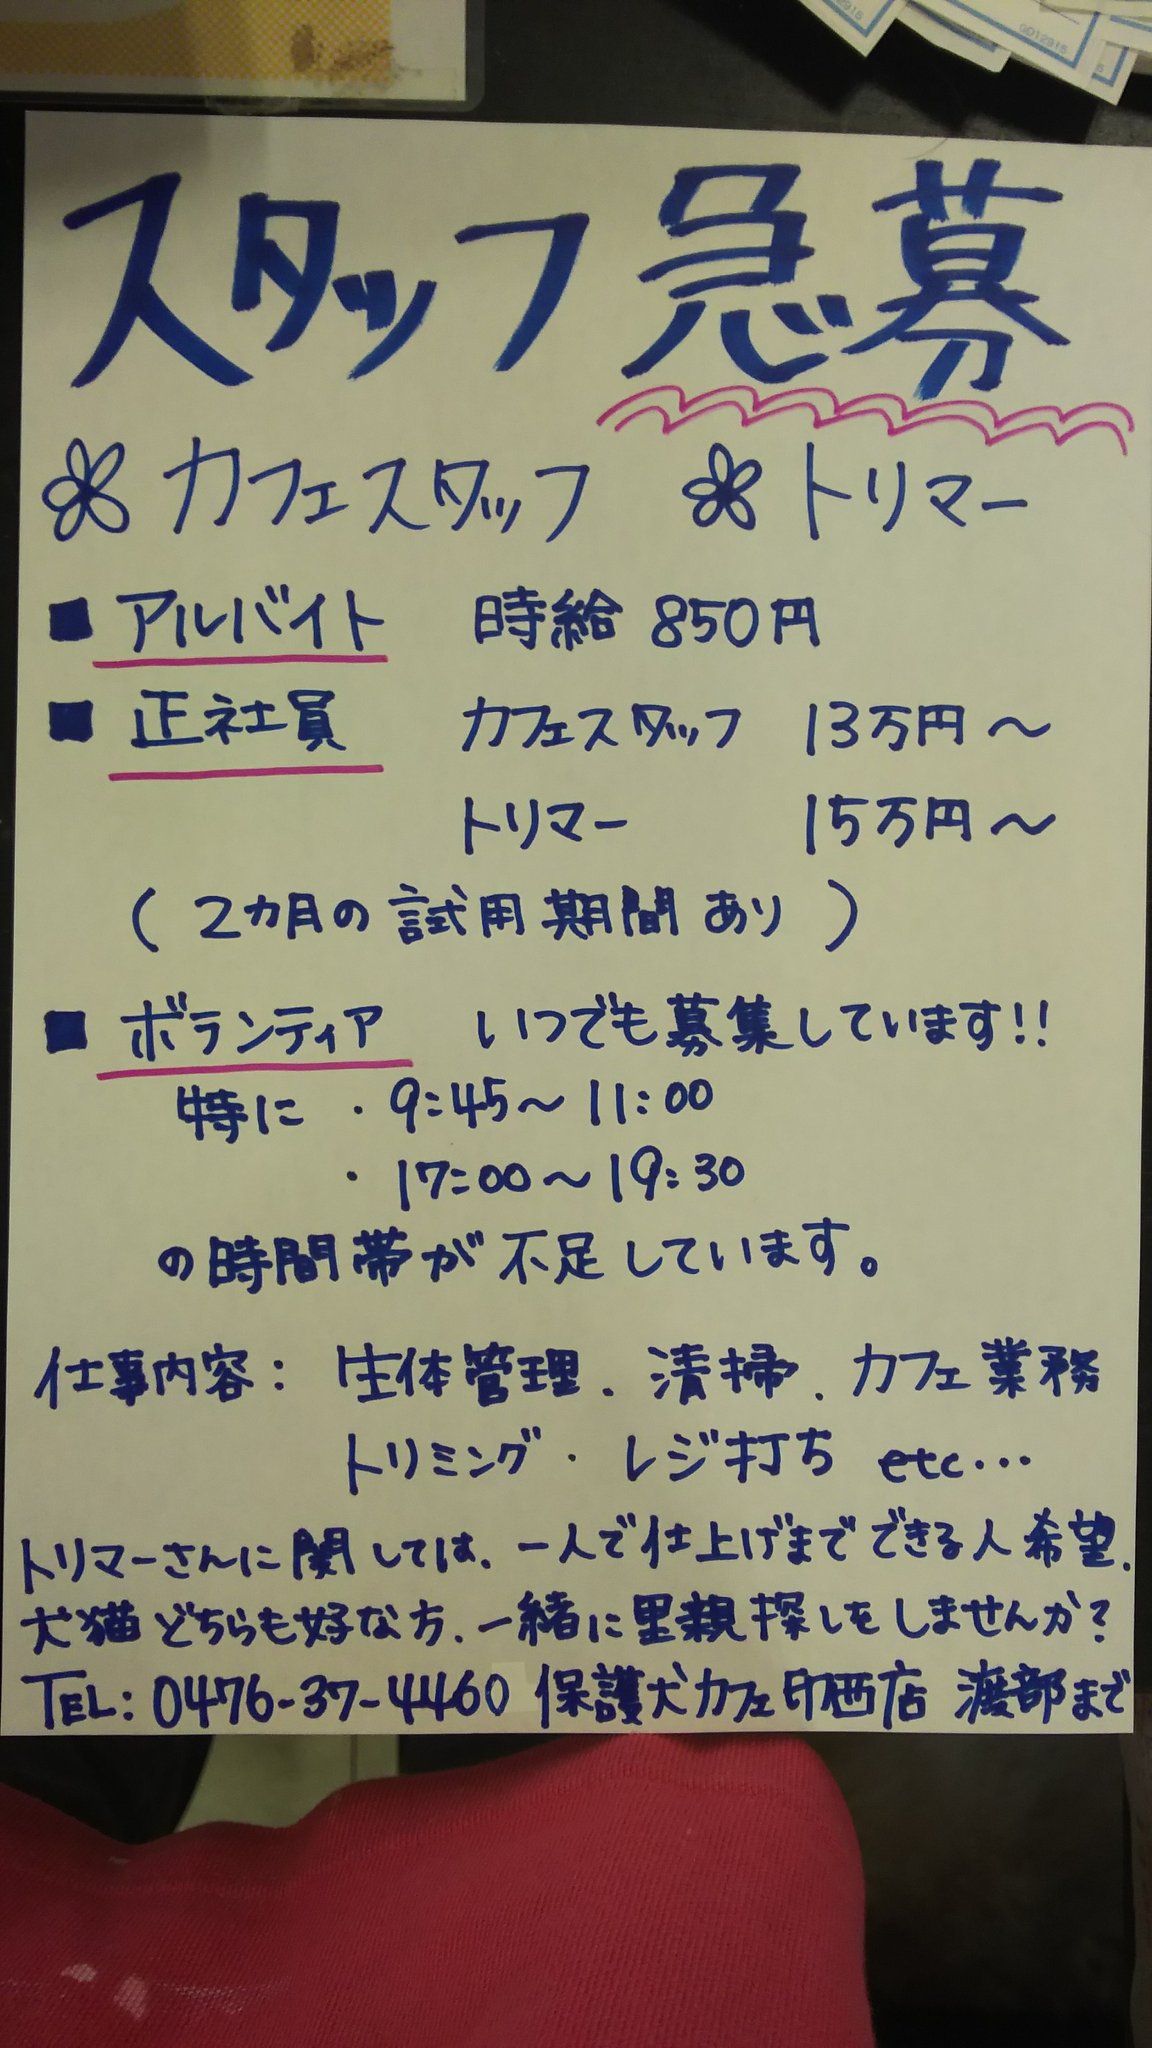 スタッフ急募
カフェスタッフ トリマー
■ アルバイト 時給 850円
■ 正社員 カフェスタッフ 13万円～
トリマー 15万円～
(2カ月の試用期間あり)
■ ボランティア いつでも募集しています!!
特に ・9:45～11:00
・17:00～19:30
の時間帯が不足しています。
仕事内容: 生体管理、清掃、カフェ業務
トリミング・レジ打ち etc…
トリマーさんに関しては、一人で仕上げまでできる人希望、
犬猫どちらも好な方、一緒に里親探しをしませんか?
TEL: 0476-37-4460 保護犬カフェ印西店 渡部まで
GD12916